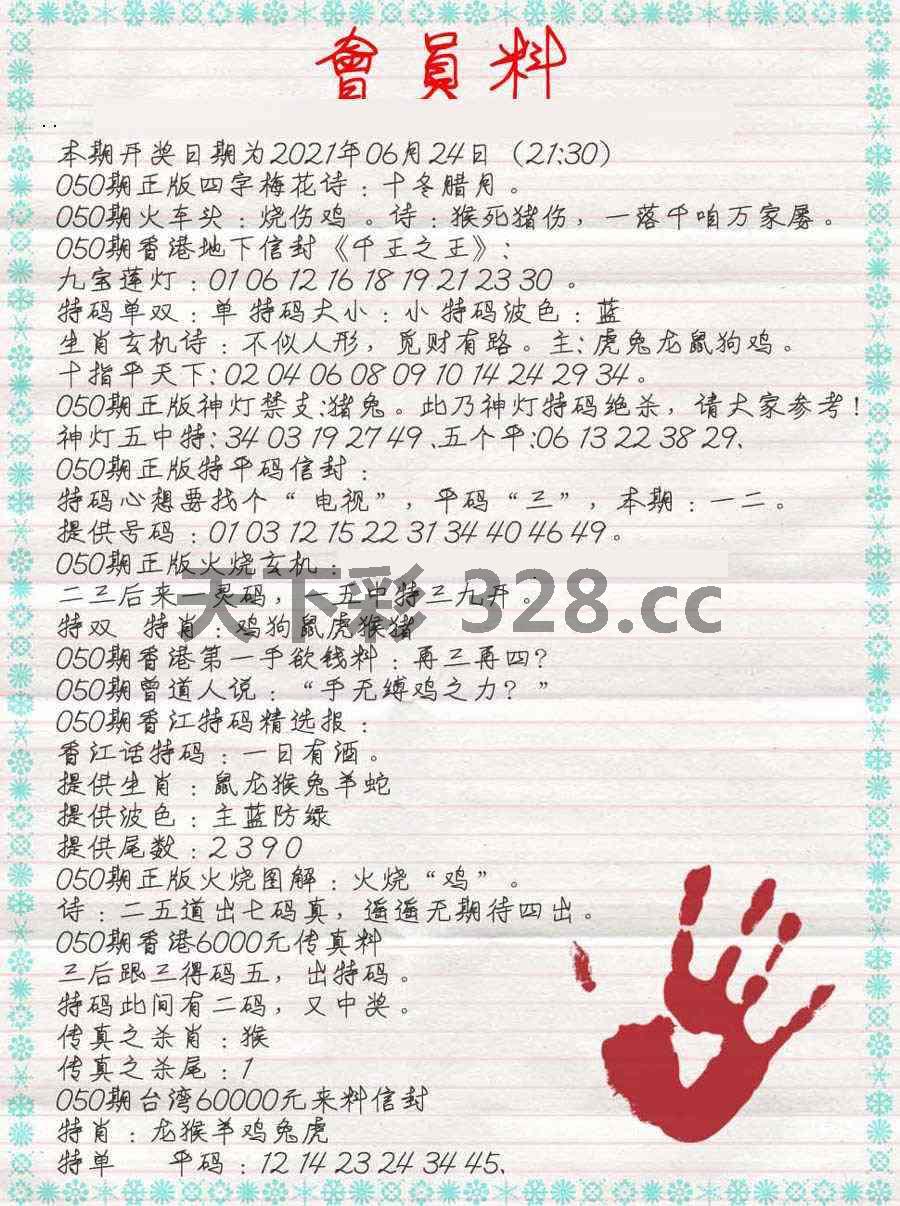 會員料
..
本期开奖日期为2021年06月24日（21:30）
050期正版四字梅花诗：十冬腊月。
050期火车头：烧伤鸡。诗：猴死猪伤，一落千咱万家屡。
050期香港地下信封《千王之王》：
九宝莲灯：01 06 12 16 18 19 21 23 30 。
特码单双：单 特码大小：小 特码波色：蓝
生肖玄机诗：不似人形，觅财有路。主：虎兔龙鼠狗鸡。
十指平天下：02 04 06 08 09 10 14 24 29 34。
050期正版神灯禁支：猪兔。此乃神灯特码绝杀，请大家参考！
神灯五中特：34 03 19 27 49、五个平：06 13 22 38 29、
050期正版特平码信封：
特码心想要找个“电视”，平码“三”，本期：一二。
提供号码：01 03 12 15 22 31 34 40 46 49。
050期正版火烧玄机：
二三后来一灵码，一五中特三九开。
天下彩 328.cc
特双 特肖：鸡狗鼠虎猴猪
050期香港第一手欲钱料：再三再四？
050期曾道人说：“手无缚鸡之力？”
050期香江特码精选报：
香江话特码：一日有酒。
提供生肖：鼠龙猴兔羊蛇
提供波色：主蓝防绿
提供尾数：2 3 9 0
050期正版火烧图解：火烧“鸡”。
诗：二五道出七码真，遥遥无期待四出。
050期香港6000元传真料
三后跟三得码五，出特码。
特码此间有二码，又中奖。
传真之杀肖：猴
传真之杀尾：1
050期台湾60000元来料信封
特肖：龙猴羊鸡兔虎
特单 平码：12 14 23 24 34 45、